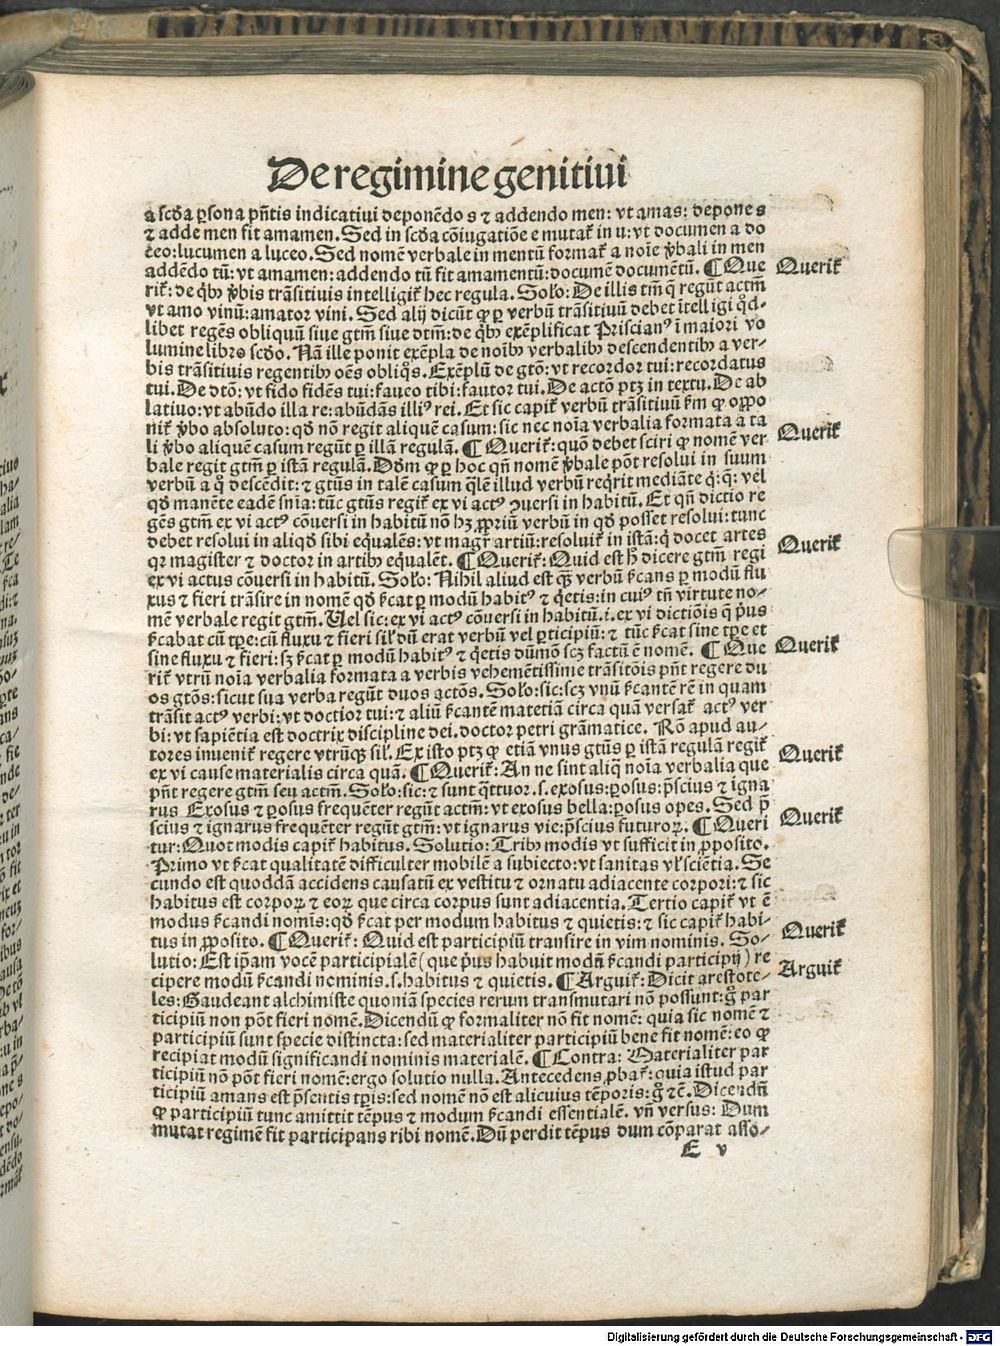 De regimine genitiui
a scďa ꝑsona pñtis indicatiui deponēdo s ⁊ addendo men: vt amas: depone s
⁊ adde men fit amamen. Sed in scďa cōiugatiōe e mutat᷑ in u: vt documen a do
ceo: lucumen a luceo. Sed nomē verbale in mentū format᷑ a noīe v̓bali in men
addēdo tū: vt amamen: addendo tū fit amamentū: documē documētū. ¶ Que
rit᷑: de q̄bꝫ v̓bis trāsitiuis intelligit᷑ hec regula. Soło: De illis tm̄ q̄ regūt actm̄
vt amo vinū: amator vini. Sed alij dicūt ꝙ ꝑ verbū trāsitiuū debet ītelligi qď-
libet regēs obliquū siue gtm̄ siue dtm̄: de q̄bꝫ exēplificat Priscianꝰ ī maiori vo
lumine libro scďo. Nā ille ponit exēpla de noībꝫ verbalibꝫ descendentibꝫ a ver-
bis trāsitiuis regentibꝫ oēs obliq̄s. Exēplū de gtō: vt recordor tui: recordatus
tui. De dtō: vt fido fidēs tui: faueo tibi: fautor tui. De actō ptꝫ in textu. De ab
latiuo: vt abūdo illa re: abūdās illiꝰ rei. Et sic capit᷑ verbū trāsitiuū ẜm ꝙ oppo
nit᷑ v̓bo absoluto: qď nō regit aliquē casum: sic nec noīa verbalia formata a ta
li v̓bo aliquē casum regūt ꝑ illā regulā. ¶ Querit᷑: quō debet sciri ꝙ nomē ver
bale regit gtm̄ ꝑ istā regulā. Dďm ꝙ ꝑ hoc qn̄ nomē v̓bale pōt resolui in suum
verbū a q̄ descēdit: ⁊ gtūs in talē casum q̄lē illud verbū req̄rit mediāte q̄: q̄: vel
qď manēte eadē sn̄ia: tūc gtūs regit᷑ ex vi actꝰ ↄuersi in habitū. Et qn̄ dictio re
gēs gtm̄ ex vi actꝰ cōuersi in habitū nō hꝫ ꝓpriū verbū in qď posset resolui: tunc
debet resolui in aliqď sibi equalēs: vt magr̄ artiū: resoluit᷑ in istā: q̄ docet artes
qꝛ magister ⁊ doctor in artibꝫ equalēt. ¶ Querit᷑: Quid est h̓ dicere gtm̄ regi
ex vi actus cōuersi in habitū. Soło: Nihil aliud est q̄ꝫ verbū ẜcans ꝑ modū flu
xus ⁊ fieri trāsire in nomē qď ẜcat ꝑ modū habitꝰ ⁊ q̄etis: in cuiꝰ tn̄ virtute no-
mē verbale regit gtm̄. Uel sic: ex vi actꝰ cōuersi in habitū .i. ex vi dictiōis q̄ p̓us
ẜcabat cū tp̄e: cū fluxu ⁊ fieri sił dū erat verbū vel ꝑticipiū: ⁊ tūc ẜcat sine tp̄e et
sine fluxu ⁊ fieri: sꝫ ẜcat ꝑ modū habitꝰ ⁊ q̄etis dūmō scꝫ factū ē nomē. ¶ Que
rit᷑ vtrū noīa verbalia formata a verbis vehemētissime trāsitōis pn̄t regere du
os gtōs: sicut sua verba regūt duos actōs. Soło: sic: scꝫ vnū ẜcantē rē in quam
trāsit actꝰ verbi: vt doctior tui: ⁊ aliū ẜcantē materiā circa quā versat᷑ actꝰ ver
bi: vt sapiētia est doctrix discipline dei. doctor petri grāmatice. Rō apud au-
tores inuenit᷑ regere vtrūqꝫ sił. Ex isto ptꝫ ꝙ etiā vnus gtūs ꝑ istā regulā regit᷑
ex vi cause materialis circa quā. ¶ Querit᷑: An ne sint aliq̄ noīa verbalia que
pn̄t regere gtm̄ seu actm̄. Soło: sic: ⁊ sunt q̄ttuor .s. exosus: ꝑosus: p̄scius ⁊ igna
rus Exosus ⁊ ꝑosus frequēter regūt actm̄: vt exosus bella: ꝑosus opes. Sed p̄
scius ⁊ ignarus frequēter regūt gtm̄: vt ignarus vie: p̄scius futuroꝝ. ¶ Queri
tur: Quot modis capit᷑ habitus. Solutio: Tribꝫ modis vt sufficit in ꝓposito.
Primo vt ẜcat qualitatē difficulter mobilē a subiecto: vt sanitas vł sciētia. Se
cundo est quoddā accidens causatū ex vestitu ⁊ ornatu adiacente corpori: ⁊ sic
habitus est corpoꝝ ⁊ eoꝝ que circa corpus sunt adiacentia. Tertio capit᷑ vt ē
modus ẜcandi nomīs: qď ẜcat per modum habitus ⁊ quietis: ⁊ sic capit᷑ habi-
tus in ꝓposito. ¶ Querit᷑: Quid est participiū transire in vim nominis. So-
lutio: Est ip̄am vocē participialē (que p̓us habuit modū ẜcandi participij) re
cipere modū ẜcandi nominis .s. habitus ⁊ quietis. ¶ Arguit᷑: Dicit arestote-
les: Gaudeant alchimiste quoniā species rerum transmutari nō possunt: g̊ par
ticipiū non pōt fieri nomē. Dicendū ꝙ formaliter nō fit nomē: quia sic nomē ⁊
participiū sunt specie distincta: sed materialiter participiū bene fit nomē: eo ꝙ
recipiat modū significandi nominis materialē. ¶ Contra: Materialiter par
ticipiū nō pōt fieri nomē: ergo solutio nulla. Antecedens ꝓbat᷑: quia istud par
ticipiū amans est p̄sentis tp̄is: sed nomē nō est alicuius tēporis: g̊ ⁊c̄. Dicendū
ꝙ participiū tunc amittit tēpus ⁊ modum ẜcandi essentialē. vn̄ versus: Dum
mutat regimē fit participans tibi nomē. Dū perdit tēpus dum cōparat asso-
E v
Querit᷑
Querit᷑
Querit᷑
Querit᷑
Querit᷑
Querit᷑
Querit᷑
Arguit᷑
Digitalisierung gefördert durch die Deutsche Forschungsgemeinschaft - DFG